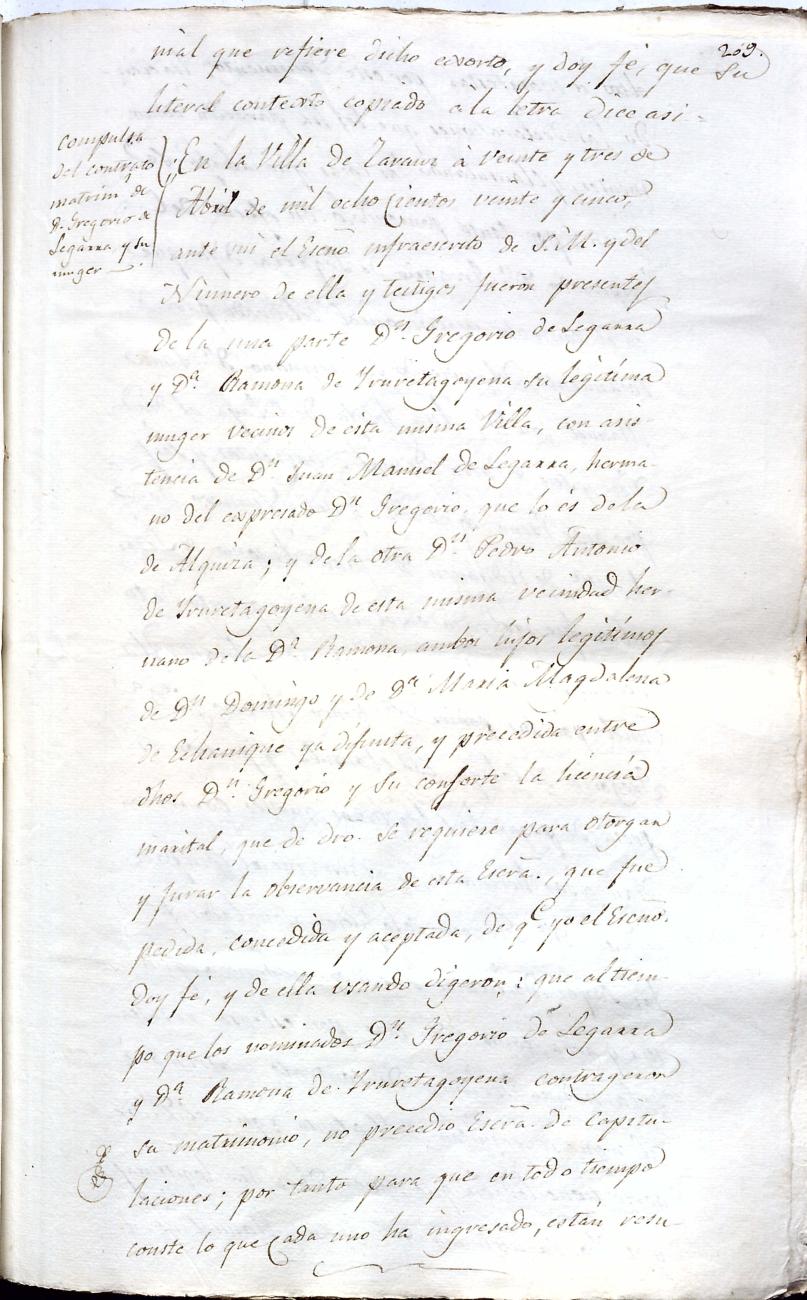 209.
nial que refiere dicho exorto, y doy fé, que su
literal contexto copiado a la letra dice asi -
Compulsa
del contrato
matrim.l de
D. Gregorio de
Legarra y su
muger
En la Villa de Zarauz à veinte y tres de
Abril de mil ocho cientos veinte y cinco,
ante mi el Esnõ infraescrito de S. M. y del
Número de ella y testigos fueron presentes
de la una parte Dn. Gregorio de Legarra
y Da. Ramona de Yruretagoyena su legitima
muger vecinos de esta misma Villa, con asis-
tencia de Dn. Juan Manuel de Legarra, herma-
no del expresado Dn. Gregorio, que lo és de la
de Alquiza; y de la otra Dn. Pedro Antonio
de Yruretagoyena de esta misma vecindad her-
mano de la Da. Ramona, ambos hijos legitimos
de Dn. Domingo y de Da. Maria Magdalena
de Echanique ya difunta, y precedida entre
dhos Dn. Gregorio y su consorte la licencia
marital, que de dro. se requiere para otorgar
y jurar la observancia de esta Escrã., que fue
pedida, concedida y aceptada, de qe. yo el Esnõ.
doy fé, y de ella usando digeron: que al tiem-
po que los nominados Dn. Gregorio de Legarra
y Da. Ramona de Yruretagoyena contrageron
su matrimonio, no precedio Escrã. de Capitu-
laciones; por tanto para que en todo tiempo
conste lo que cada uno ha ingresado, están resu-